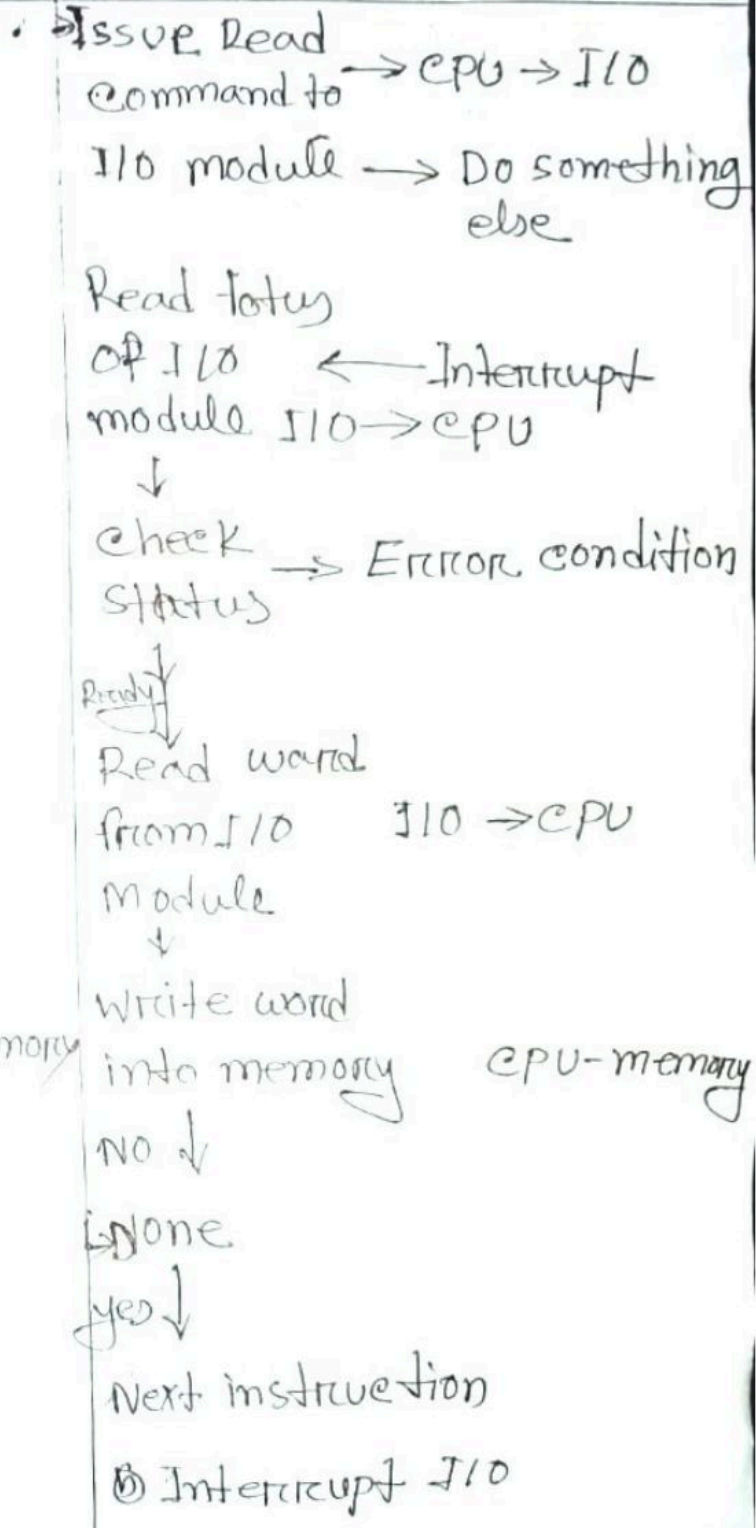 Issue Read
Command to → CPU → I/O
I/O module → Do something
else
Read tatus
of I/O ← Interrupt
module I/O → CPU
↓
Check
Status → Error condition
Ready ↓
Read ward
from I/O I/O → CPU
Module
↓
Write word
mory into memory CPU-memory
NO ↓
Done
yes ↓
Next instruction
ⓑ Interrupt I/O